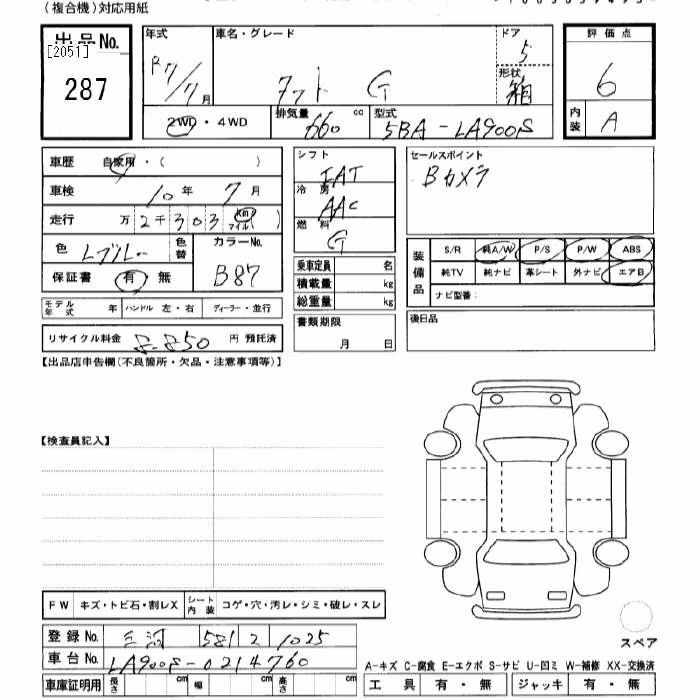 (複合機)対応用紙
出品No.
[2051]
287
年式
R7/7月
車名・グレード
タフト G
ドア
5
形状
箱
評価点
6
内装
A
2WD・4WD
排気量
660 cc
型式
5BA-LA900S
車歴 自家用・( )
車検 10年 7月
走行 万 2千 303 Km マイル
色 Lブルー
色替
カラーNo.
B87
保証書 有 無
モデル年式 年 ハンドル 左・右 ディーラー・並行
リサイクル料金 8850 円 預託済
シフト
IAT
冷房
AAC
燃料
G
乗車定員 名
積載量 kg
総重量 kg
書類期限
月 日
セールスポイント
Bカメラ
装備品
S/R 純A/W P/S P/W ABS
純TV 純ナビ 革シート 外ナビ エアB
ナビ型番:
後日品
【出品店申告欄(不良箇所・欠品・注意事項等)】
【検査員記入】
FW キズ・トビ石・割レX シート内装 コゲ・穴・汚レ・シミ・破レ・スレ
登録No. 三河 581 2 1025
車台No. LA900S-0214760
車庫証明用 長さ cm 幅 cm 高さ cm
スペア
A-キズ C-腐食 E-エクボ S-サビ U-凹ミ W-補修 XX-交換済
工具 有・無 ジャッキ 有・無